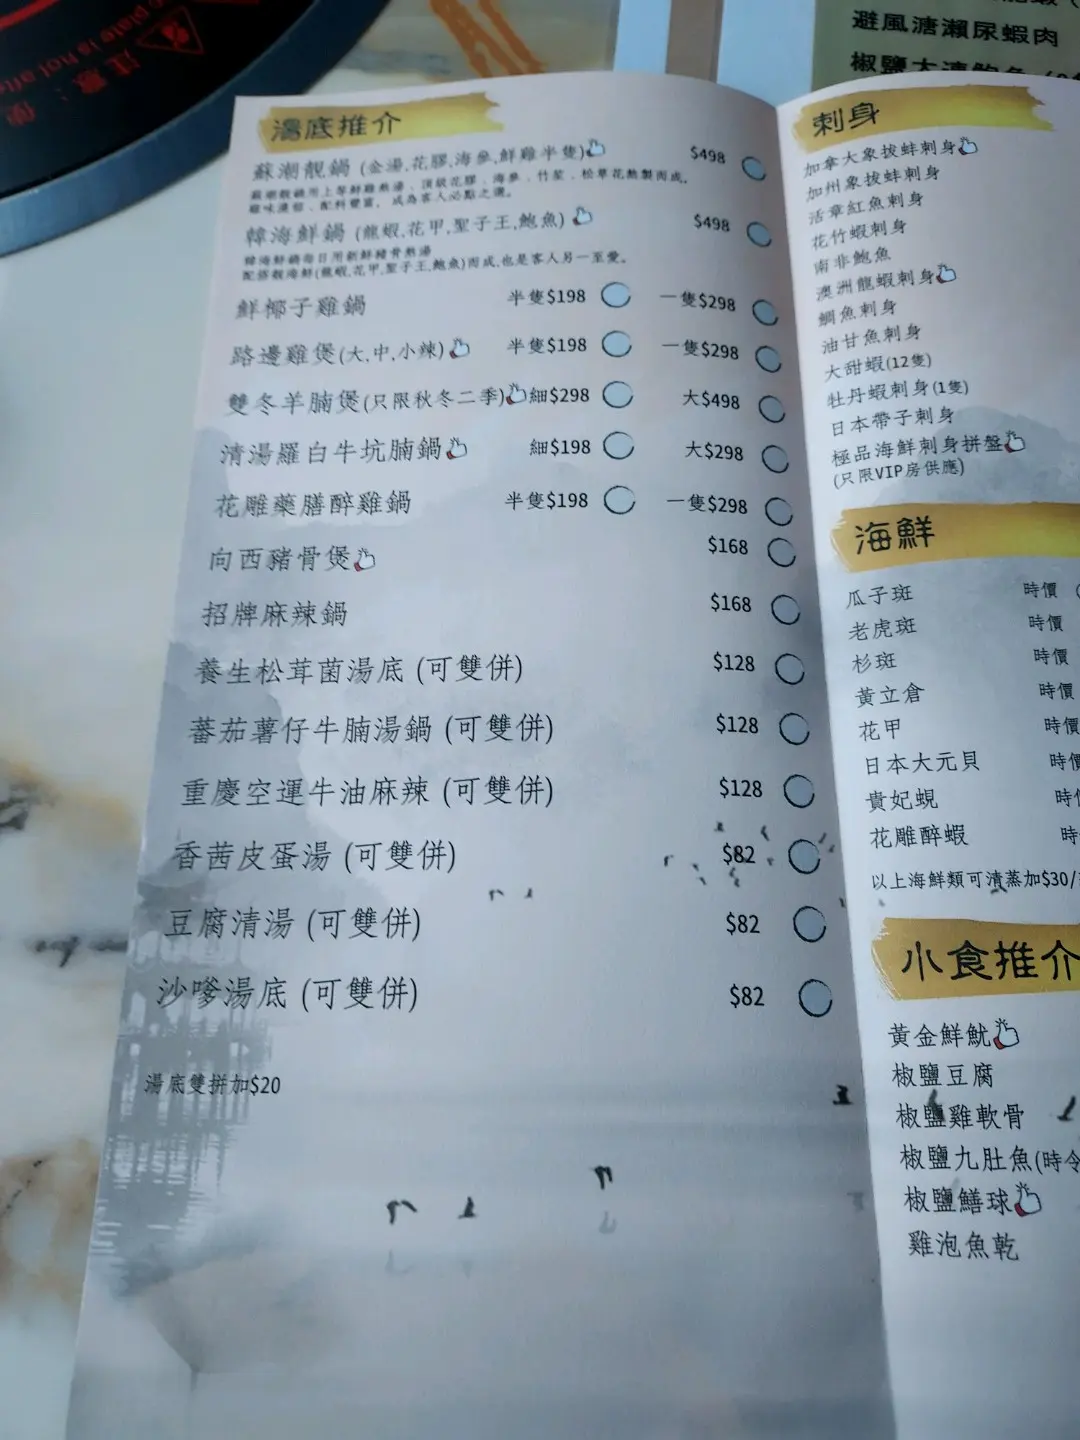 湯底推介
蘇潮靚鍋 (金湯,花膠,海參,鮮雞半隻) $498
蘇潮靚鍋用上等鮮雞熬湯、頂級花膠、海參、竹笙、松茸花熬製而成。
雞味濃郁、配料豐富,成為客人必點之選。
韓海鮮鍋 (龍蝦,花甲,聖子王,鮑魚) $498
韓海鮮鍋每日用新鮮豬骨熬湯
配搭靚海鮮(龍蝦,花甲,聖子王,鮑魚)而成,也是客人另一至愛。
鮮椰子雞鍋 半隻$198 一隻$298
路邊雞煲(大,中,小辣) 半隻$198 一隻$298
雙冬羊腩煲(只限秋冬二季) 細$298 大$498
清湯羅白牛坑腩鍋 細$198 大$298
花雕藥膳醉雞鍋 半隻$198 一隻$298
向西豬骨煲 $168
招牌麻辣鍋 $168
養生松茸菌湯底 (可雙併) $128
蕃茄薯仔牛腩湯鍋 (可雙併) $128
重慶空運牛油麻辣 (可雙併) $128
香茜皮蛋湯 (可雙併) $82
豆腐清湯 (可雙併) $82
沙嗲湯底 (可雙併) $82
湯底雙拼加$20
避風溏瀨尿蝦肉
刺身
加拿大象拔蚌刺身
加州象拔蚌刺身
活章紅魚刺身
花竹蝦刺身
南非鮑魚
澳洲龍蝦刺身
鯛魚刺身
油甘魚刺身
大甜蝦(12隻)
牡丹蝦刺身(1隻)
日本帶子刺身
極品海鮮刺身拼盤
(只限VIP房供應)
海鮮
瓜子斑 時價
老虎斑 時價
杉斑 時價
黃立倉 時價
花甲 時價
日本大元貝 時價
貴妃蜆 時
花雕醉蝦 時
以上海鮮類可清蒸加$30/
小食推介
黃金鮮魷
椒鹽豆腐
椒鹽雞軟骨
椒鹽九肚魚(時令
椒鹽鱔球
雞泡魚乾